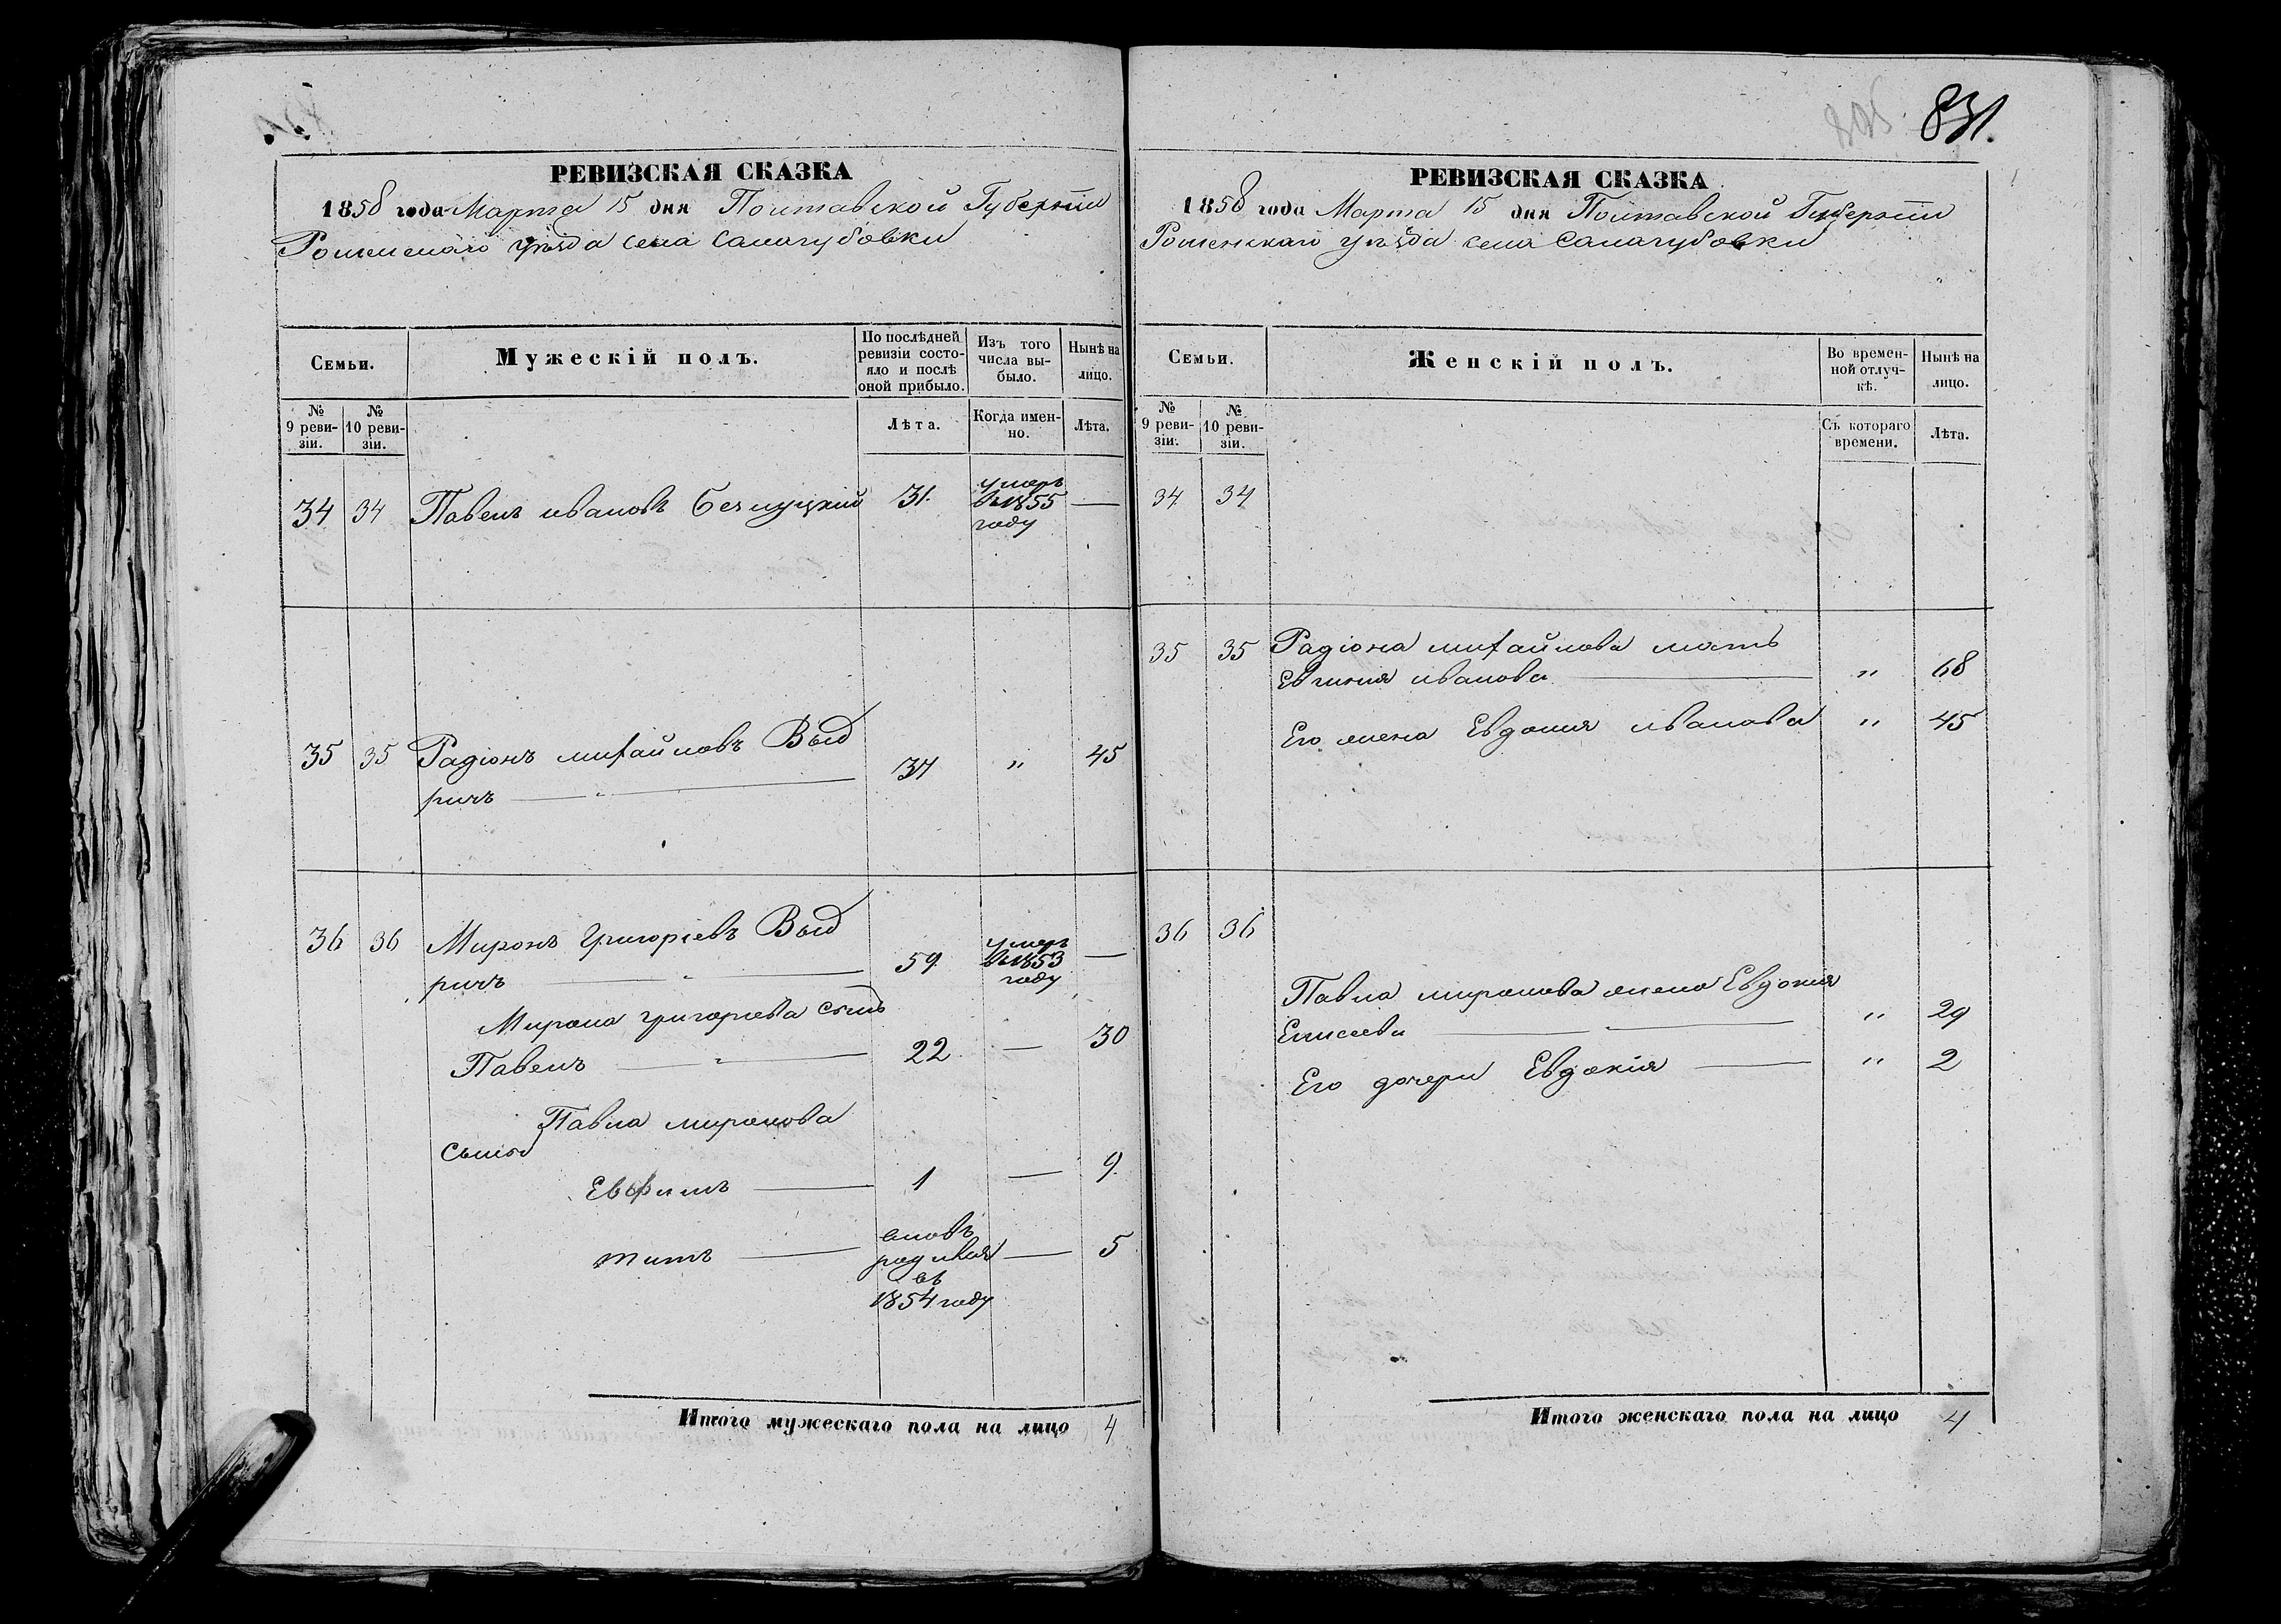 831.
РЕВИЗСКАЯ СКАЗКА
1858 года Марта 15 дня Полтавской Губерніи
Роменскаго уѣзда села Салагубовки
Семьи.
Мужескій полъ.
По послѣдней ревизіи состояло и послѣ оной прибыло.
Изъ того числа выбыло.
Нынѣ на лицо.
№ 9 ревизіи.
№ 10 ревизіи.
Лѣта.
Когда именно.
Лѣта.
34 34 Павелъ ивановъ 31. умеръ в 1855 году —
35 35 Радіонъ михайловъ Выд
ричъ — 37 " 45
36 36 Миронъ Григоріевъ Выд
ричъ — 59 умеръ в 1853 году —
Мирона григориева сынъ
Павелъ — 22 — 30
Павла миронова
Сыновья
Евфимъ — 1 — 9
титъ — вновь родился въ 1854 году — 5
Итого мужескаго пола на лицо 4
РЕВИЗСКАЯ СКАЗКА
1858 года Марта 15 дня Полтавской Губерніи
Роменскаго уѣзда села Салагубовки
Семьи.
Женскій полъ.
Во временной отлучкѣ.
Нынѣ на лицо.
№ 9 ревизіи.
№ 10 ревизіи.
Съ котораго времени.
Лѣта.
34 34
35 35 Радіона михайлова мать
ивановa — " 68
Его жена Евдокия иванова " 45
36 36
Павла миронова жена Евдокия
Елисеева — " 29
Его дочери Евдокия — " 2
Итого женскаго пола на лицо 4